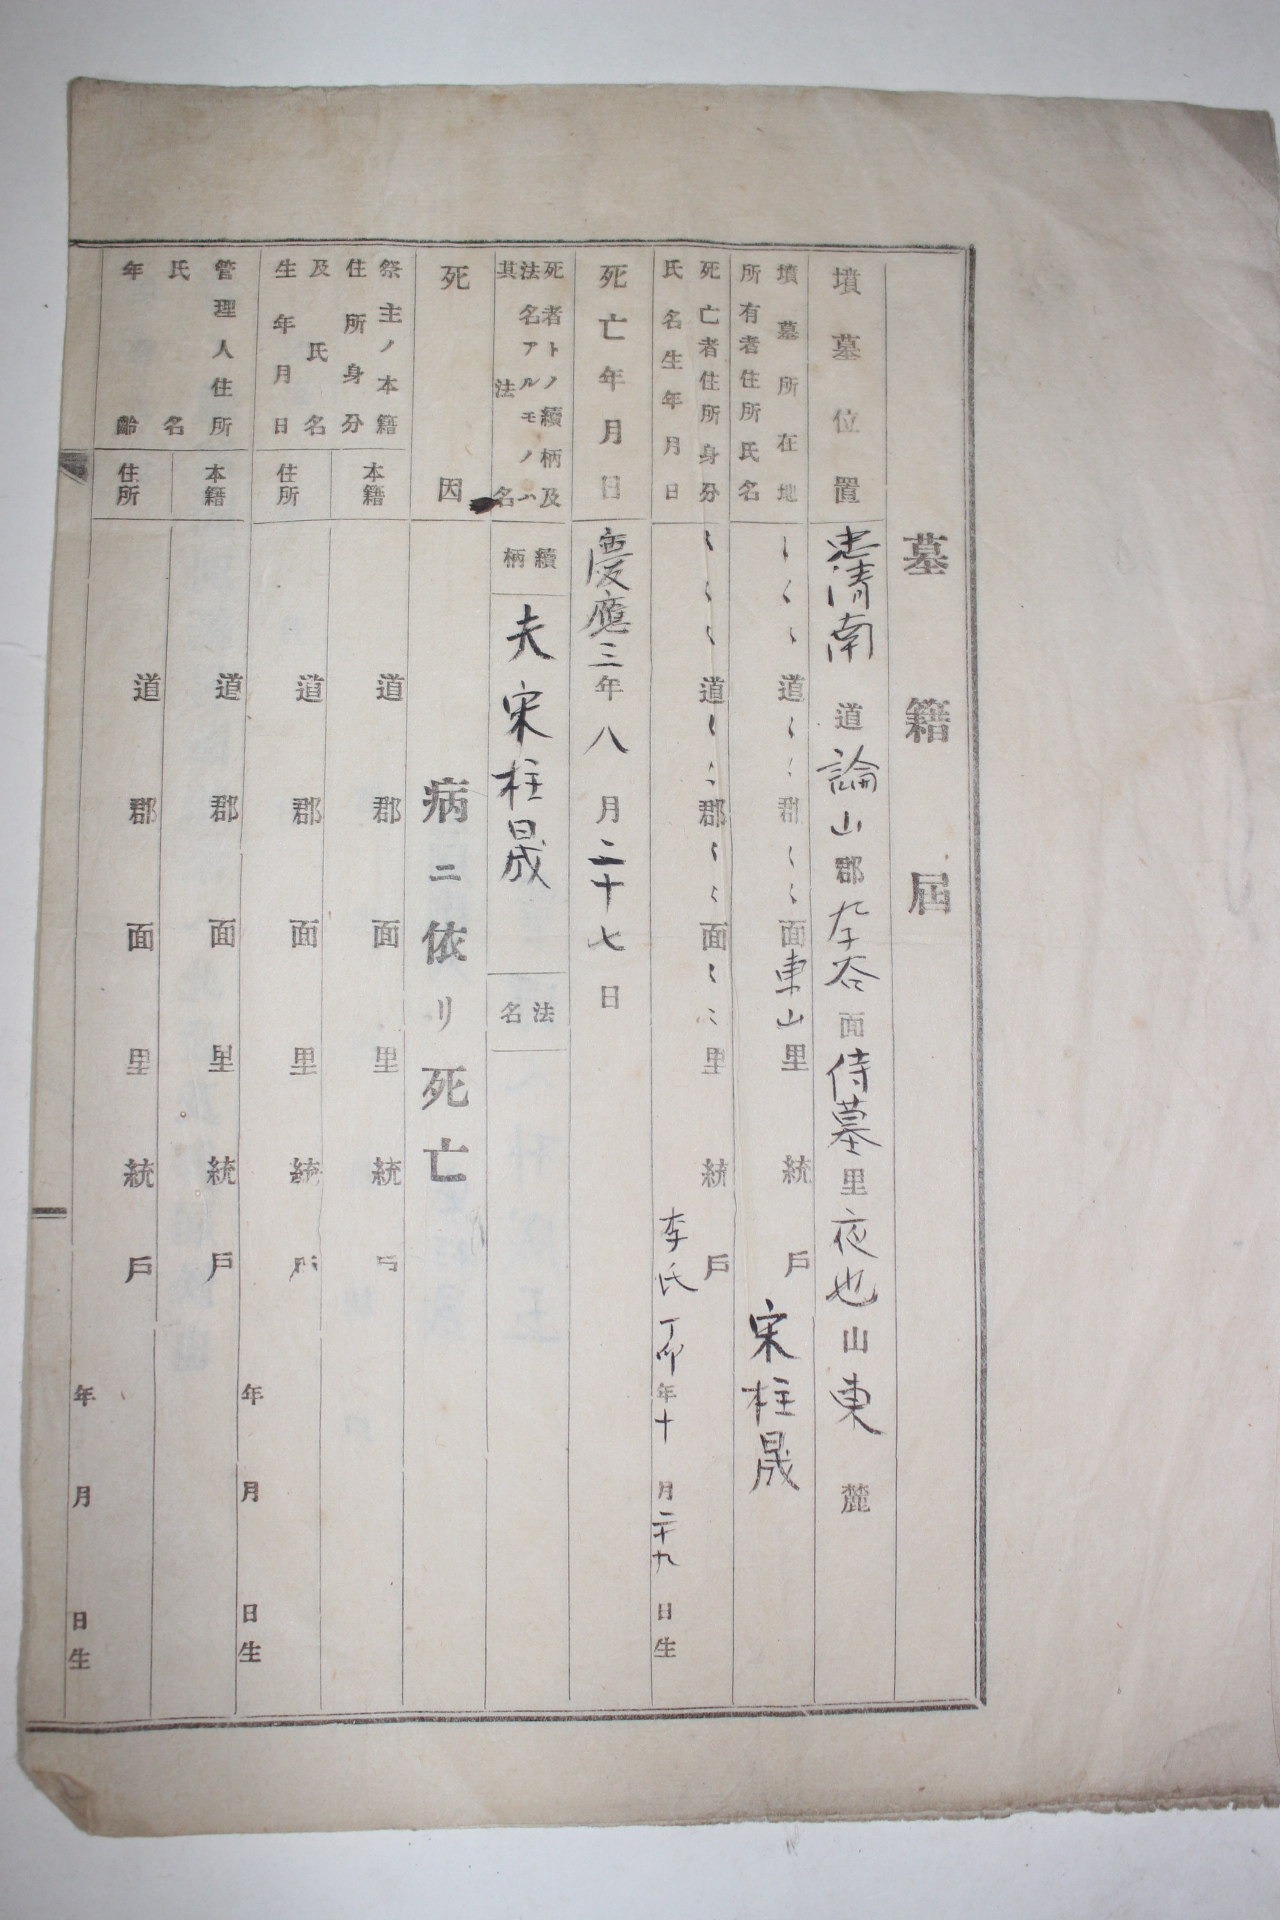 墓籍届
墳墓位置
忠清南道論山郡 面侍墓里夜也山東麓
墳墓所在地
所有者住所氏名
〻〻〻道〻〻郡〻〻面東山里 統 戶
宋柱晟
死亡者住所身分
氏名生年月日
〻〻〻道〻〻郡〻〻面〻〻里 統 戶
李氏 丁卯年十月二十九日生
死亡年月日
慶應三年八月二十七日
死者トノ續柄及
法名アルモノハ
其法名
續柄
夫 宋柱晟
法名
死因
病ニ依リ死亡
祭主ノ本籍
住所身分
及氏名
生年月日
本籍
道 郡 面 里 統 戶
住所
道 郡 面 里 統 戶
年 月 日生
管理人住所
氏名
年齡
本籍
道 郡 面 里 統 戶
住所
道 郡 面 里 統 戶
年 月 日生